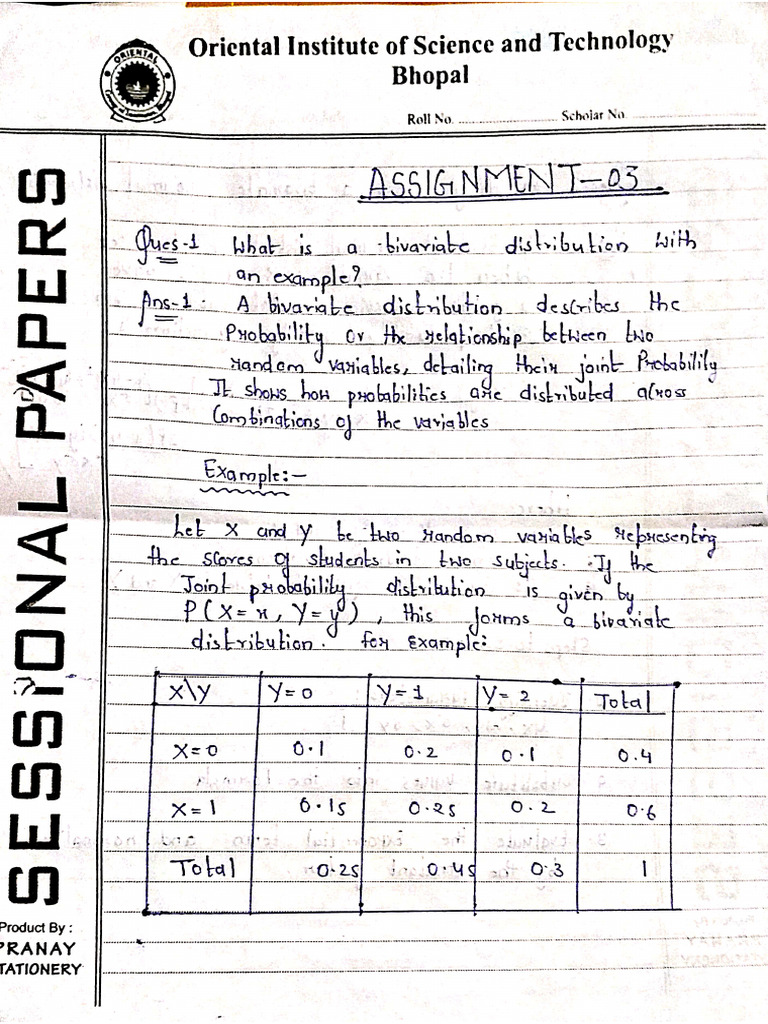 Oriental Institute of Science and Technology
Bhopal
ORIENTAL
Roll No. Scholar No.
SESSIONAL PAPERS
ASSIGNMENT-03
Ques-1 What is a bivariate distribution with
an example?
Ans-1: A bivariate distribution describes the
Probability or the relationship between two
random variables, detailing their joint Probability
It shows how probabilities are distributed across
Combinations of the variables
Example:-
Let X and Y be two random variables representing
the scores of students in two subjects. If the
Joint probability distribution is given by
P(X=x, Y=y), this forms a bivariate
distribution. for example:
X\Y Y=0 Y=1 Y=2 Total
X=0 0.1 0.2 0.1 0.4
X=1 0.15 0.25 0.2 0.6
Total 0.25 0.45 0.3 1
Product By :
PRANAY
TATIONERY